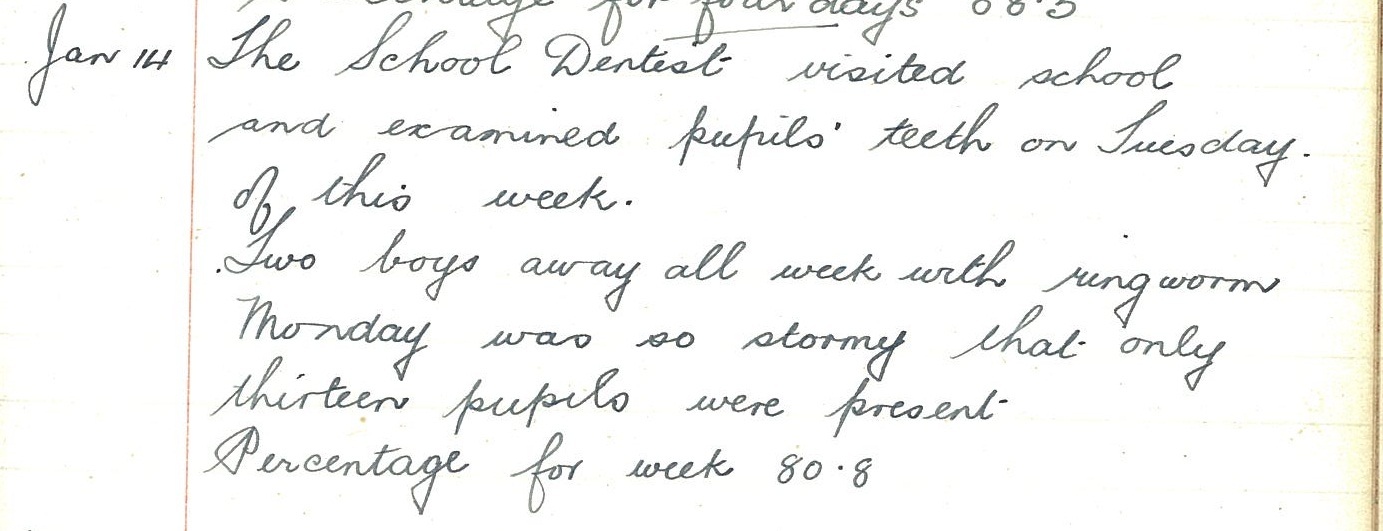 for four days
Jan 14 The School Dentist visited school
and examined pupils' teeth on Tuesday.
of this week.
Two boys away all week with ringworm
Monday was so stormy that only
thirteen pupils were present
Percentage for week 80.8